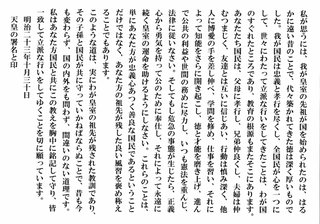 私が思うには、我が皇室の祖先が国を始められたのは、はる
かに遠い昔のことで、代々築かれてきた徳は深く厚いもので
した。我が国民は忠義と孝行を尽くし、全国民が心を一つに
して、世々にわたって立派な行いをしてきたことは、わが国
のすぐれたところであり、教育の根源もまたそこにあります。
あなたたち国民は、父母に孝行し、兄弟仲良くし、夫婦は仲
むつまじく、友達とは互いに信じあい、行動は慎み深く、他
人に博愛の手を差し伸べ、学問を修め、仕事を習い、それに
よって知能をさらに開き起こし、徳と才能を磨き上げ、進ん
で公共の利益や世間の務めに尽力し、いつも憲法を重んじ、
法律に従いなさい。そしてもし危急の事態が生じたら、正義
心から勇気を持って公のために奉仕し、それによって永遠に
続く皇室の運命を助けるようにしなさい。これらのことは、
単にあなた方が忠義心あつく善良な国民であるということ
だけではなく、あなた方の祖先が残した良い風習を褒め称え
ることでもあります。
このような道は、実にわが皇室の祖先が残された教訓であり、
その子孫と国民が共に守っていかねばならぬことで、昔も今
も変わらず、国の内外をも問わず、間違いのない道理です。
私はあなた方国民と共にこの教えを胸中に銘記して守り、皆
一致して立派な行いをしてゆくことを切に願っています。
明治二十三年十月三十日
天皇の署名と印